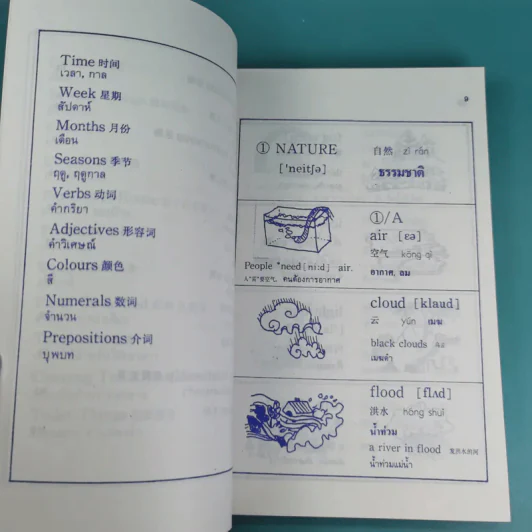 Time 时间
เวลา, กาล
Week 星期
สัปดาห์
Months 月份
เดือน
Seasons 季节
ฤดู, ฤดูกาล
Verbs 动词
คำกริยา
Adjectives 形容词
คำวิเศษณ์
Colours 颜色
สี
Numerals 数词
จำนวน
Prepositions 介词
บุพบท
9
① NATURE
['neitʃə]
自然 zì rán
ธรรมชาติ
①/A
air [ɛə]
空气 kōng qì
อากาศ, ลม
People need [ni:d] air.
คนต้องการอากาศ
cloud [klaud]
云 yún เมฆ
black clouds
เมฆดำ
flood [flʌd]
洪水 hóng shuǐ
น้ำท่วม
a river in flood
น้ำท่วมแม่น้ำ